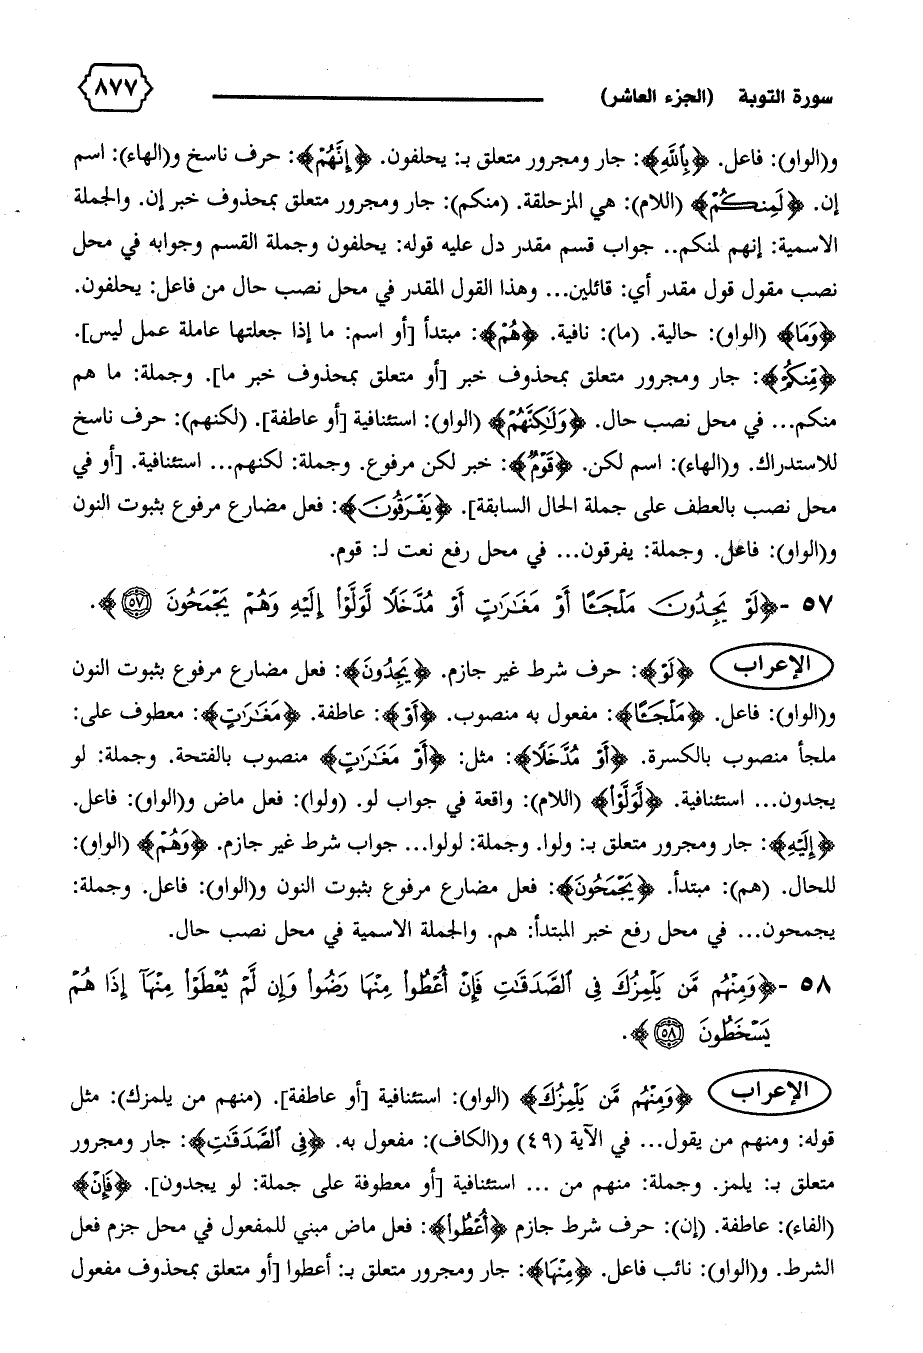 سورة التوبة (الجزء العاشر) ٨٧٧
و(الواو): فاعل. ﴿بِاللَّهِ﴾: جار ومجرور متعلق بـ: يحلفون. ﴿إِنَّهُمْ﴾: حرف ناسخ و(الهاء): اسم
إن. ﴿لَمِنكُمْ﴾ (اللام): هي المزحلقة. (منكم): جار ومجرور متعلق بمحذوف خبر إن. والجملة
الاسمية: إنهم لمنكم.. جواب قسم مقدر دل عليه قوله: يحلفون وجملة القسم وجوابه في محل
نصب مقول قول مقدر أي: قائلين... وهذا القول المقدر في محل نصب حال من فاعل: يحلفون.
﴿وَمَا﴾ (الواو): حالية. (ما): نافية. ﴿هُم﴾: مبتدأ [أو اسم: ما إذا جعلتها عاملة عمل ليس].
﴿مِّنكُمْ﴾: جار ومجرور متعلق بمحذوف خبر [أو متعلق بمحذوف خبر ما]. وجملة: ما هم
منكم... في محل نصب حال. ﴿وَلَٰكِنَّهُمْ﴾ (الواو): استئنافية [أو عاطفة]. (لكنهم): حرف ناسخ
للاستدراك. و(الهاء): اسم لكن. ﴿قَوْمٌ﴾: خبر لكن مرفوع. وجملة: لكنهم... استئنافية. [أو في
محل نصب بالعطف على جملة الحال السابقة]. ﴿يَفْرَقُونَ﴾: فعل مضارع مرفوع بثبوت النون
و(الواو): فاعل. وجملة: يفرقون... في محل رفع نعت لـ: قوم.
٥٧ - ﴿لَوْ يَجِدُونَ مَلْجَـًٔا أَوْ مَغَٰرَٰتٍ أَوْ مُدَّخَلًا لَّوَلَّوْا۟ إِلَيْهِ وَهُمْ يَجْمَحُونَ ٥٧﴾.
الإعراب ﴿لَوْ﴾: حرف شرط غير جازم. ﴿يَجِدُونَ﴾: فعل مضارع مرفوع بثبوت النون
و(الواو): فاعل. ﴿مَلْجَـًٔا﴾: مفعول به منصوب. ﴿أَوْ﴾: عاطفة. ﴿مَغَٰرَٰتٍ﴾: معطوف على:
ملجأ منصوب بالكسرة. ﴿أَوْ مُدَّخَلًا﴾: مثل: ﴿أَوْ مَغَٰرَٰتٍ﴾ منصوب بالفتحة. وجملة: لو
يجدون... استئنافية. ﴿لَّوَلَّوْا۟﴾ (اللام): واقعة في جواب لو. (ولوا): فعل ماض و(الواو): فاعل.
﴿إِلَيْهِ﴾: جار ومجرور متعلق بـ: ولوا. وجملة: لولوا... جواب شرط غير جازم. ﴿وَهُمْ﴾ (الواو):
للحال. (هم): مبتدأ. ﴿يَجْمَحُونَ﴾: فعل مضارع مرفوع بثبوت النون و(الواو): فاعل. وجملة:
يجمحون... في محل رفع خبر المبتدأ: هم. والجملة الاسمية في محل نصب حال.
٥٨ - ﴿وَمِنْهُم مَّن يَلْمِزُكَ فِى ٱلصَّدَقَٰتِ فَإِنْ أُعْطُوا۟ مِنْهَا رَضُوا۟ وَإِن لَّمْ يُعْطَوْا۟ مِنْهَآ إِذَا هُمْ
يَسْخَطُونَ ٥٨﴾.
الإعراب ﴿وَمِنْهُم مَّن يَلْمِزُكَ﴾ (الواو): استئنافية [أو عاطفة]. (منهم من يلمزك): مثل
قوله: ومنهم من يقول... في الآية (٤٩) و(الكاف): مفعول به. ﴿فِى ٱلصَّدَقَٰتِ﴾: جار ومجرور
متعلق بـ: يلمز. وجملة: منهم من ... استئنافية [أو معطوفة على جملة: لو يجدون]. ﴿فَإِنْ﴾
(الفاء): عاطفة. (إن): حرف شرط جازم ﴿أُعْطُوا۟﴾: فعل ماض مبني للمفعول في محل جزم فعل
الشرط. و(الواو): نائب فاعل. ﴿مِنْهَا﴾: جار ومجرور متعلق بـ: أعطوا [أو متعلق بمحذوف مفعول